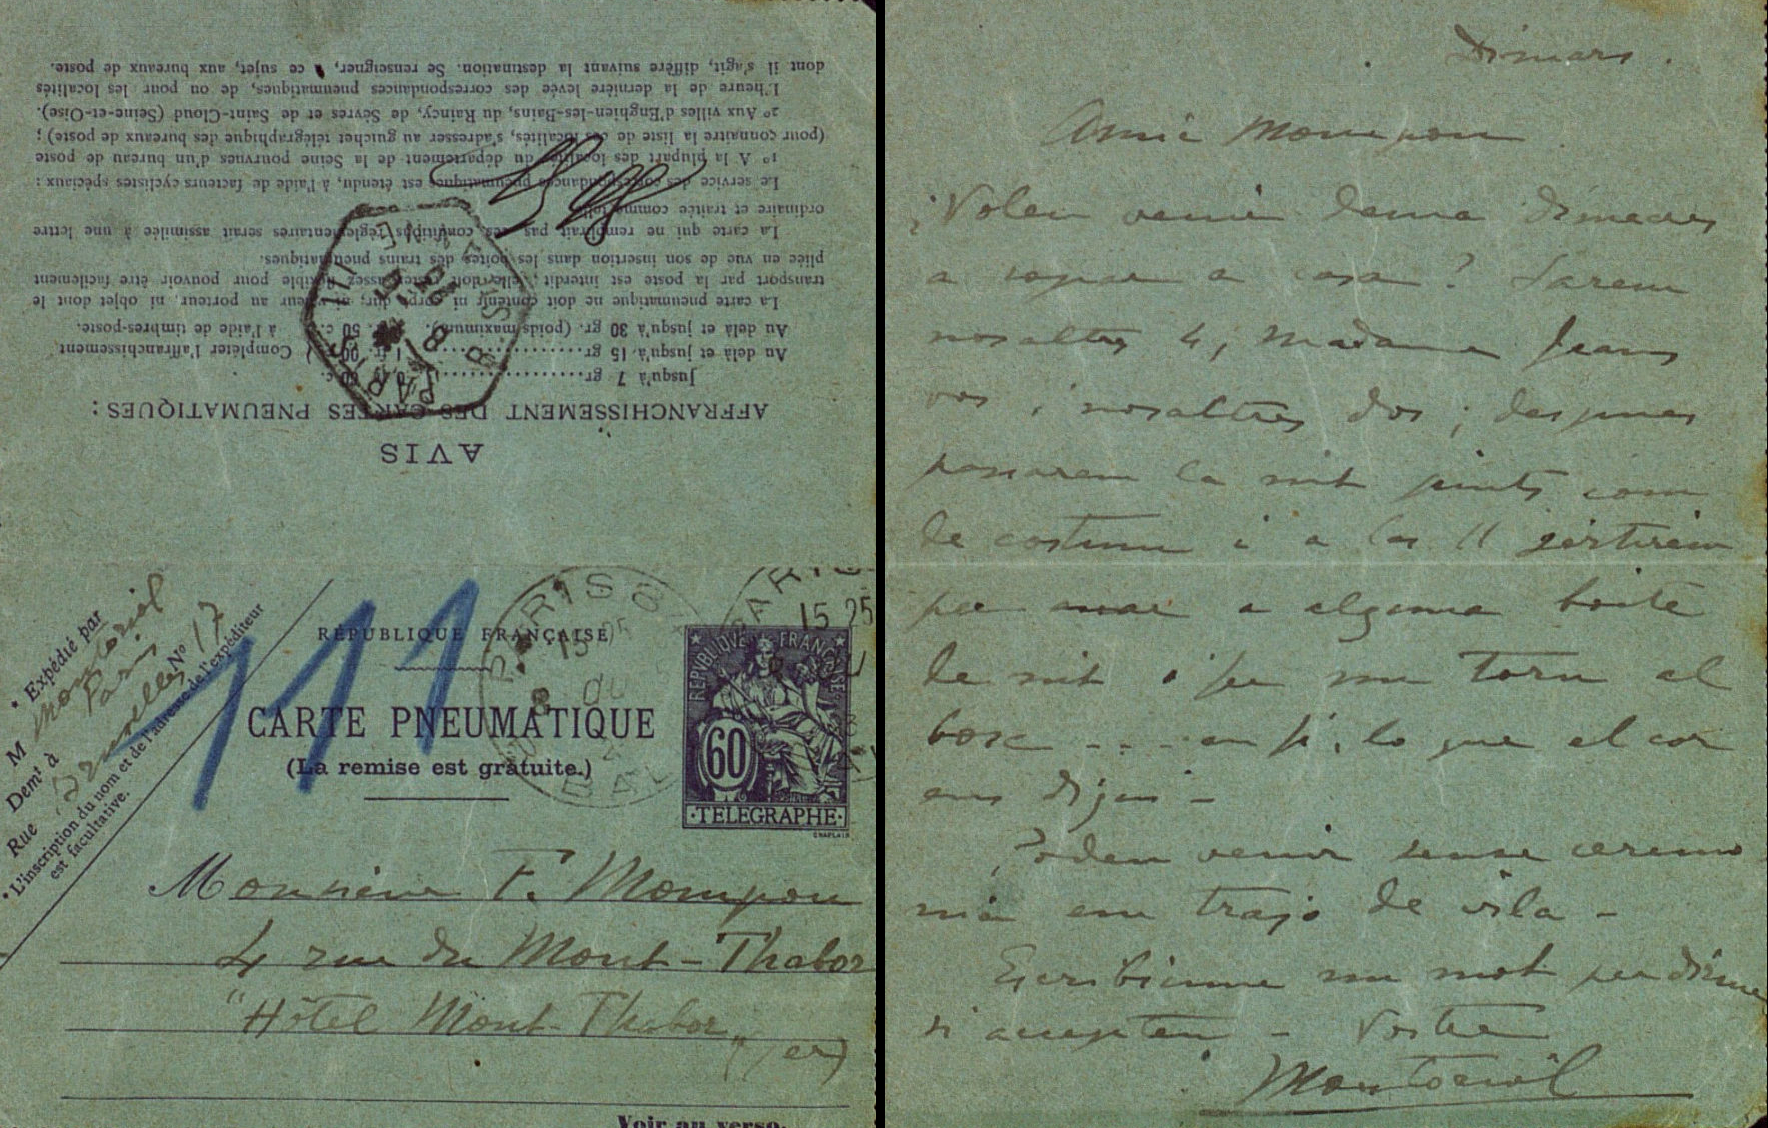 AVIS
AFFRANCHISSEMENT DES CARTES PNEUMATIQUES :
Jusqu'à 7 gr. 0 fr. 60 c.
Au delà et jusqu'à 15 gr. 1 fr. 00 c. } Compléter l'affranchissement
Au delà et jusqu'à 30 gr. (poids maximum). 1 fr. 50 c. } à l'aide de timbres-poste.
La carte pneumatique ne doit contenir ni corps dur, ni valeur au porteur, ni objet dont le
transport par la poste est interdit ; elle doit rester assez flexible pour pouvoir être facilement
pliée en vue de son insertion dans les boîtes des trains pneumatiques.
La carte qui ne remplirait pas ces conditions réglementaires serait assimilée à une lettre
ordinaire et traitée comme telle.
Le service des correspondances pneumatiques est étendu, à l'aide de facteurs cyclistes spéciaux :
1° A la plupart des localités du département de la Seine pourvues d'un bureau de poste
(pour connaître la liste de ces localités, s'adresser au guichet télégraphique des bureaux de poste) ;
2° Aux villes d'Enghien-les-Bains, du Raincy, de Sèvres et de Saint-Cloud (Seine-et-Oise).
L'heure de la dernière levée des correspondances pneumatiques, de ou pour les localités
dont il s'agit, diffère suivant la destination. Se renseigner, à ce sujet, aux bureaux de poste.
PARIS
Expédié par
M Montoriol
Demt à Paris
Rue Brunelles No 17
L'inscription du nom et de l'adresse de l'expéditeur
est facultative.
111
RÉPUBLIQUE FRANÇAISE
CARTE PNEUMATIQUE
(La remise est gratuite.)
PARIS
15 25
PARIS
15 25
REPUBLIQUE FRANÇAISE
60
TELEGRAPHE
CHAPLAIN
Monsieur F. Mompou
4 rue du Mont-Thabor
"Hôtel Mont-Thabor"
(1er)
Voir au verso.
Dimars.
Amic Mompou
¿Voleu venir dema dimecres
a sopar a casa? Sarem
nosaltres 4, Madame Jeans
vos i nosaltres dos; despues
passarem la nit junts com
de costum i a las 11 sortirem
per anar a alguna boite
de nit o fer un torn al
bosc - - - en fi, lo que el cor
ens digui -
Podeu venir sense ceremo-
nia em trajo de vila -
Escribiume un mot per dirme
si accepteu - Vostre
Montoriol